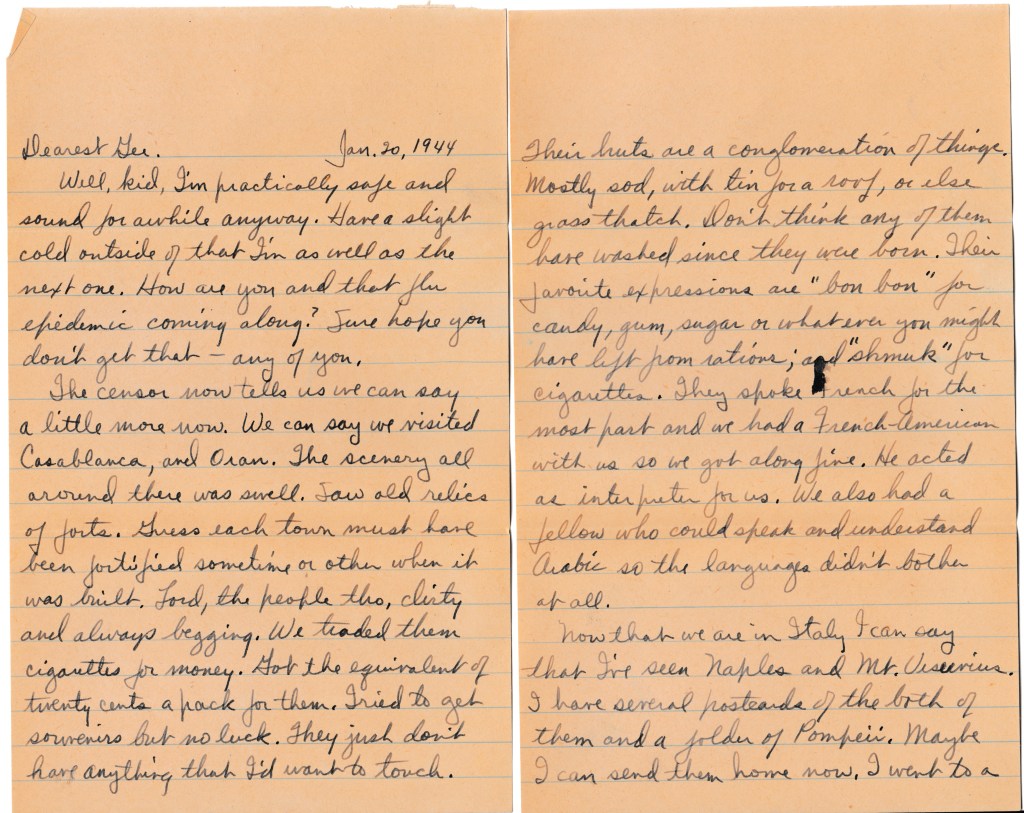 Dearest Gee. Jan. 20, 1944
Well, kid, I'm practically safe and
sound for awhile anyway. Have a slight
cold outside of that I'm as well as the
next one. How are you and that flu
epidemic coming along? Sure hope you
don't get that – any of you.
The censor now tells us we can say
a little more now. We can say we visited
Casablanca, and Oran. The scenery all
around there was swell. Saw old relics
of forts. Guess each town must have
been fortified sometime or other when it
was built. Lord, the people tho, dirty
and always begging. We traded them
cigarettes for money. Got the equivalent of
twenty cents a pack for them. Tried to get
souvenirs but no luck. They just don't
have anything that I'd want to touch.
Their huts are a conglomeration of things.
Mostly sod, with tin for a roof, or else
grass thatch. Don't think any of them
have washed since they were born. Their
favorite expressions are "bon bon" for
candy, gum, sugar or what ever you might
have left from rations; and "shmuk" for
cigarettes. They spoke French for the
most part and we had a French-American
with us so we got along fine. He acted
as interpreter for us. We also had a
fellow who could speak and understand
Arabic so the languages didn't bother
at all.
Now that we are in Italy I can say
that I've seen Naples and Mt. Vesuvius.
I have several postcards of the both of
them and a folder of Pompeii. Maybe
I can send them home now. I went to a